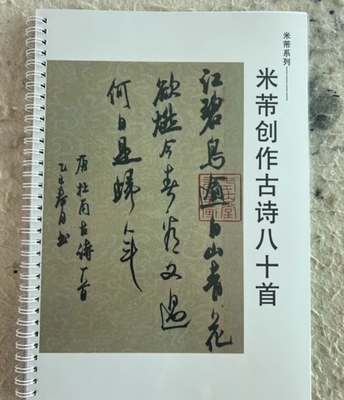 米芾系列————
米芾创作古诗八十首
江碧鳥逾白山青花
欲燃今春看又過
何日是歸年
唐杜甫古诗一首